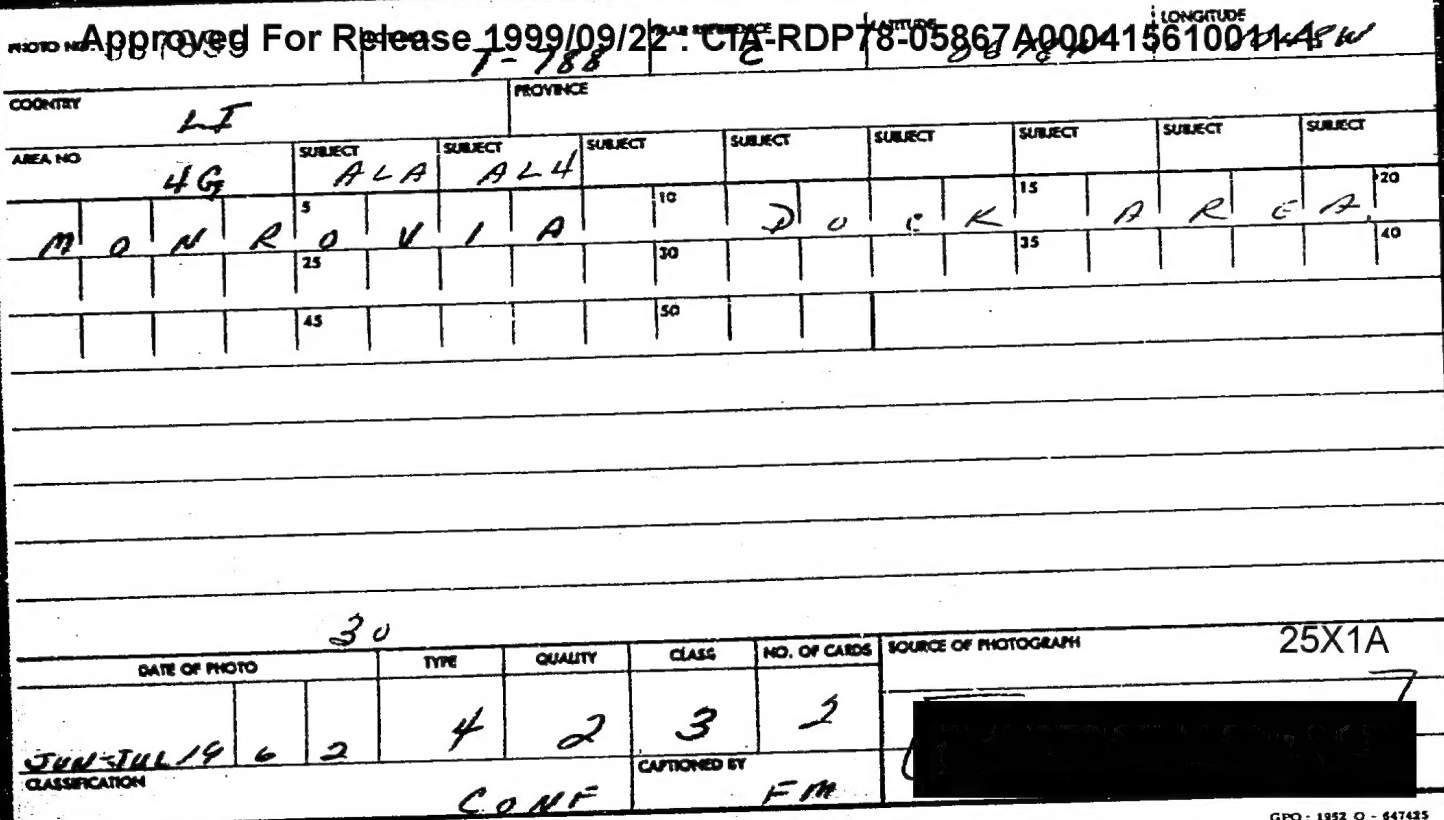 Approved For Release 1999/09/22 : CIA-RDP78-05867A000415610011-4
PHOTO NO. T-788 C LATITUDE LONGITUDE
COUNTRY LI PROVINCE
AREA NO 4G SUBJECT ALA SUBJECT AL4 SUBJECT SUBJECT SUBJECT SUBJECT SUBJECT SUBJECT
5 10 15 20
MONROVIA DOCK AREA
25 30 35 40
45 50
30
DATE OF PHOTO TYPE QUALITY CLASS NO. OF CARDS SOURCE OF PHOTOGRAPH 25X1A
JUN-JUL 1962 4 2 3 2
CLASSIFICATION CONF CAPTIONED BY FM
GPO - 1952 O - 647425